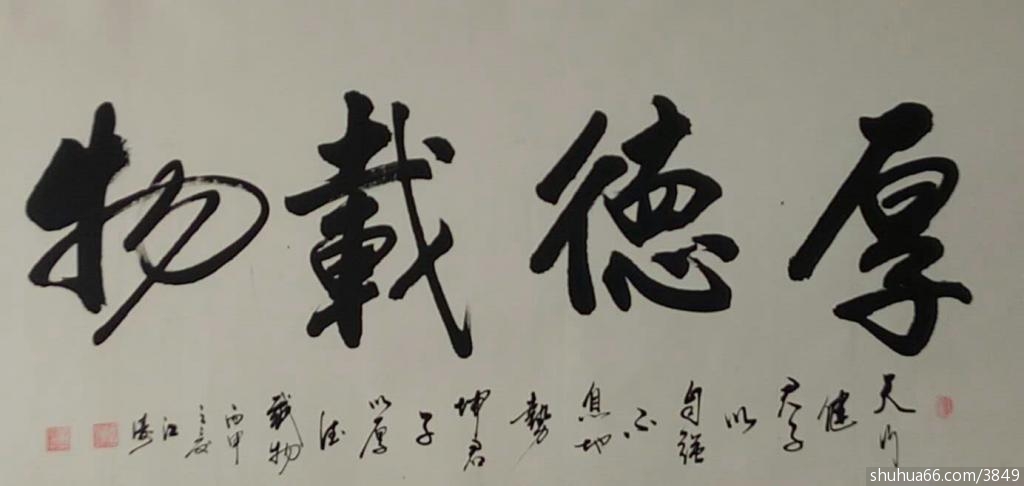 厚德載物
天行
健
君子
以
自強
不
息地
勢
坤君
子
以厚
德
載物
丙申
之夏
江
shuhua66.com/3849